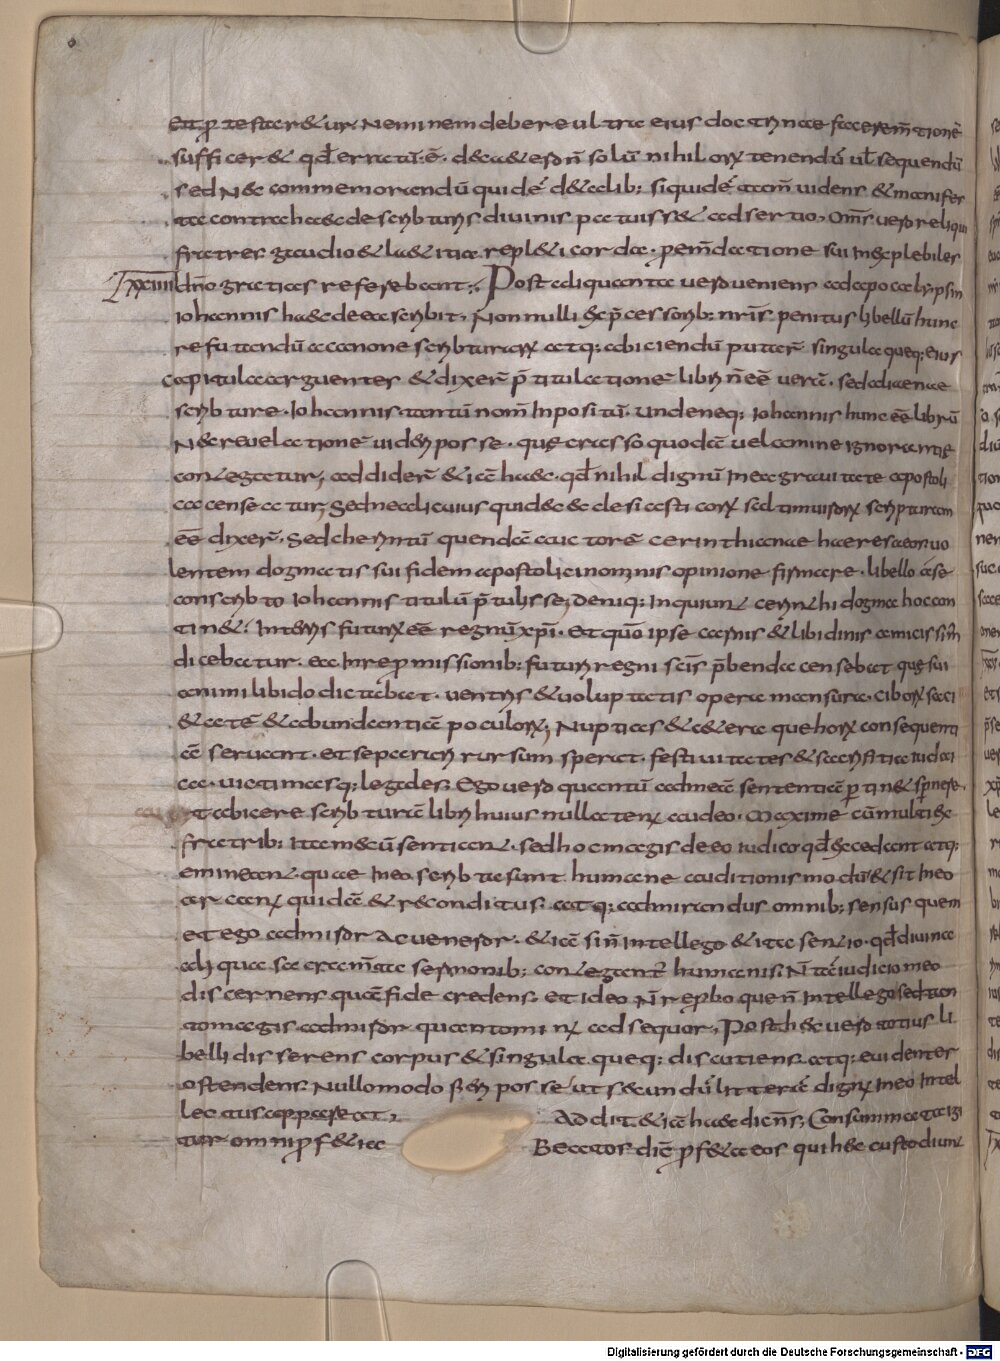 Et protestaretur. Neminem debere ultra eius doctrinae facere m̄tionē
sufficer& qđ erratū ē. d&a& ero n̄ solū nihil orꝝ tenendū ul sequendū
sed nec commemorandū quidē d& aelib; siquidē eam uidens & manifes
tae contra haec de scribturis diuinis patuiss& adsertio. Om̄s uero reliqui
fratres gaudio & la&itia repl&i corda. pem̄datione sui In his plebiles
Lxxiiii dn̄o gratias referebant; Post aliquanta uero ueniens ad apocalypsin
Iohannis haec de ea scribit, Non nulli ex p̄cessorib; nr̄is penitus libellū hunc
refutandū a canone scribturarꝝ atq; abiciendū putar̄ singula queq; eius
capitula arguentes & dixer̄ p̄titulationē libri n̄ eē uerā. sed alienae
scribture. Iohannis tantū nom̄ Inpositū. unde neq; Iohannis hunc eē librū
Nec reuelationē uideri posse. quę crasso quodā uelamine ignorantię
contegatur, addider̄ & iā haec. qđ nihil dignū In ea grauitate apostoli
ca censeatur, sed nec alicuius quidē aeclesiasticorꝝ sed timuisorꝝ scripturam
eē dixer̄. Sed cherintū quendā auctorē cerinthianae haereseos uo
lentem dogmatis sui fidem apostolici nominis opinione firmare. libello a se
conscribto Iohannis titulū p̄tulisse, deniq; Inquiunt cerinthi dogma hoc con
tin&. In terris futurꝝ eē regnū xp̄i. et quō ipse carnis & libidinis amicissim̄
dicebatur. ea In repromissionib; futuri regni scīs p̄benda censebat quę sui
animi libido dictabat. uentris & uoluptatis opera mansura. ciborꝝ saci
&atē & abundantiā poculorꝝ, Nuptias & c&era que horꝝ consequenti
ā seruant. et separari rursum sperat. festiuitates & sacrificia iudai
ca. uictimasq; legales. Ego uero quantū ad meā sententiā ptin& spernere
at abicere scribturā libri huius nullatenꝰ audeo. Maxime cū multi ex
fratrib; Itemecū sentiant. sed hoc magis de eo iudico qđ excedant atq;
emineant. quae In eo scribta sunt humane auditionis modū & sit In eo
arcanꝰ quidā & reconditus. atq; admirandus omnib; sensus quem
et ego admiror Ac ueneror. & iā si n̄ Intellego & ita sentio. qđ diuina
aliqua sacram̄ta sermonib; contegant̄ humanis. N̄ tā iudicio meo
discernens quā fide credens. et Ideo N̄ reprobo que n̄ Intellego sed tan
to magis admiror quanto minꝰ adsequor, Post hec uero totius li
belli disserens corpus & singula queq; discutiens atq; euidenter
ostendens Nullo modo fieri posse ut secundū litterā dignꝝ In eo Intel
lectus appareat, Addit & iā haec dicēns; Consummata igi
tur omni prof&ia Beatos dicē prof&a eos qui hec custodiunt
Digitalisierung gefördert durch die Deutsche Forschungsgemeinschaft - DFG